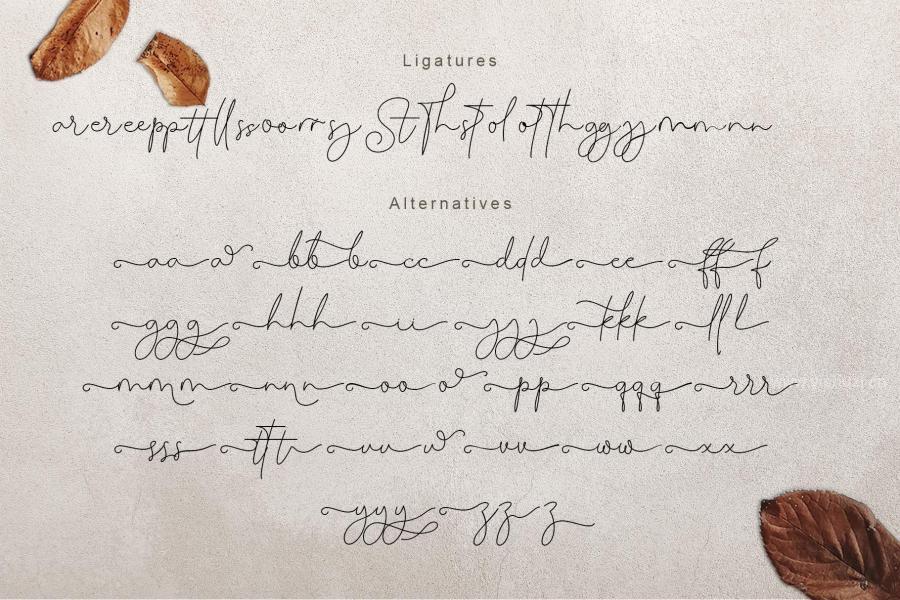 Ligatures
arereeppttllssoorrsy St Th st ol ot th gg yy mm nn
Alternatives
aa a bb b cc ddd ee ff f
ggg hhh ii jjj kkk lll
mmm nnn oo o pp qqq rrr
sss ttt uu u vv ww xx
yyy zz z